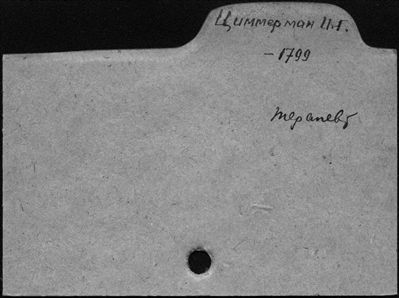 Циммерман И.Г.
– 1799
терапевт